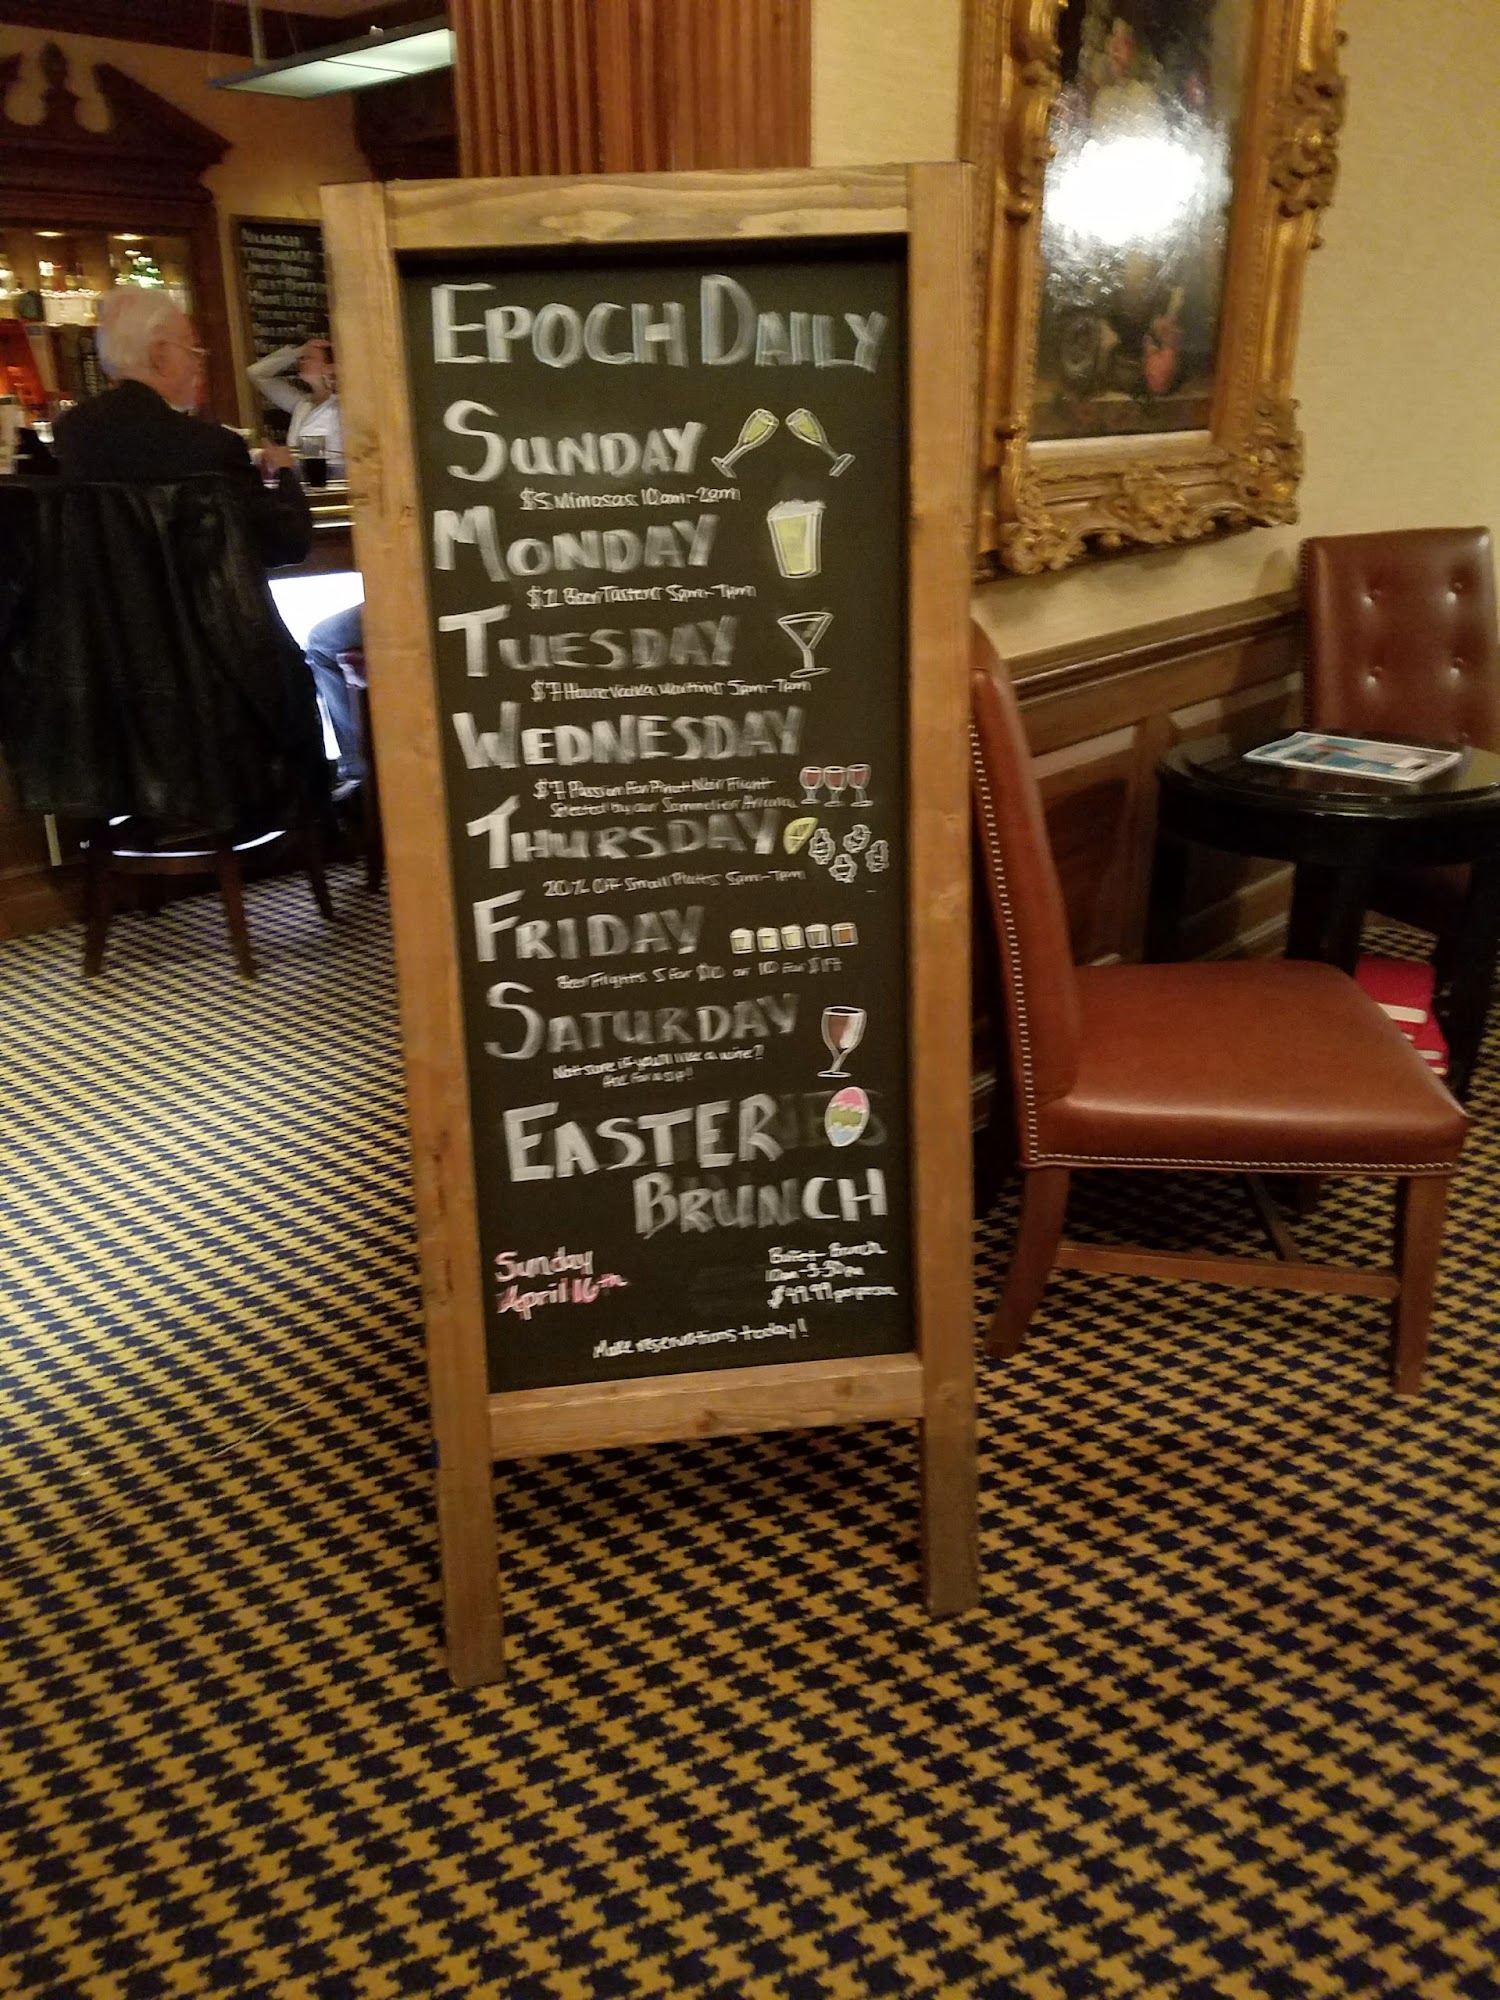 EPOCH DAILY
SUNDAY
$5 Mimosas 10am-2pm
MONDAY
$1 Beer Tasters 5pm-7pm
TUESDAY
$7 House Vodka Martinis 5pm-7pm
WEDNESDAY
$7 Passion for Pinot Noir Flight
Selected by our Sommelier
THURSDAY
20% Off Small Plates 5pm-7pm
FRIDAY
Beer Flights 5 for $10 or 10 for $17
SATURDAY
Not sure if you'll like a wine?
Ask for a sip!
EASTER
BRUNCH
Sunday
April 16th
Buffet Brunch
10am-3:30pm
per person
Make reservations today!